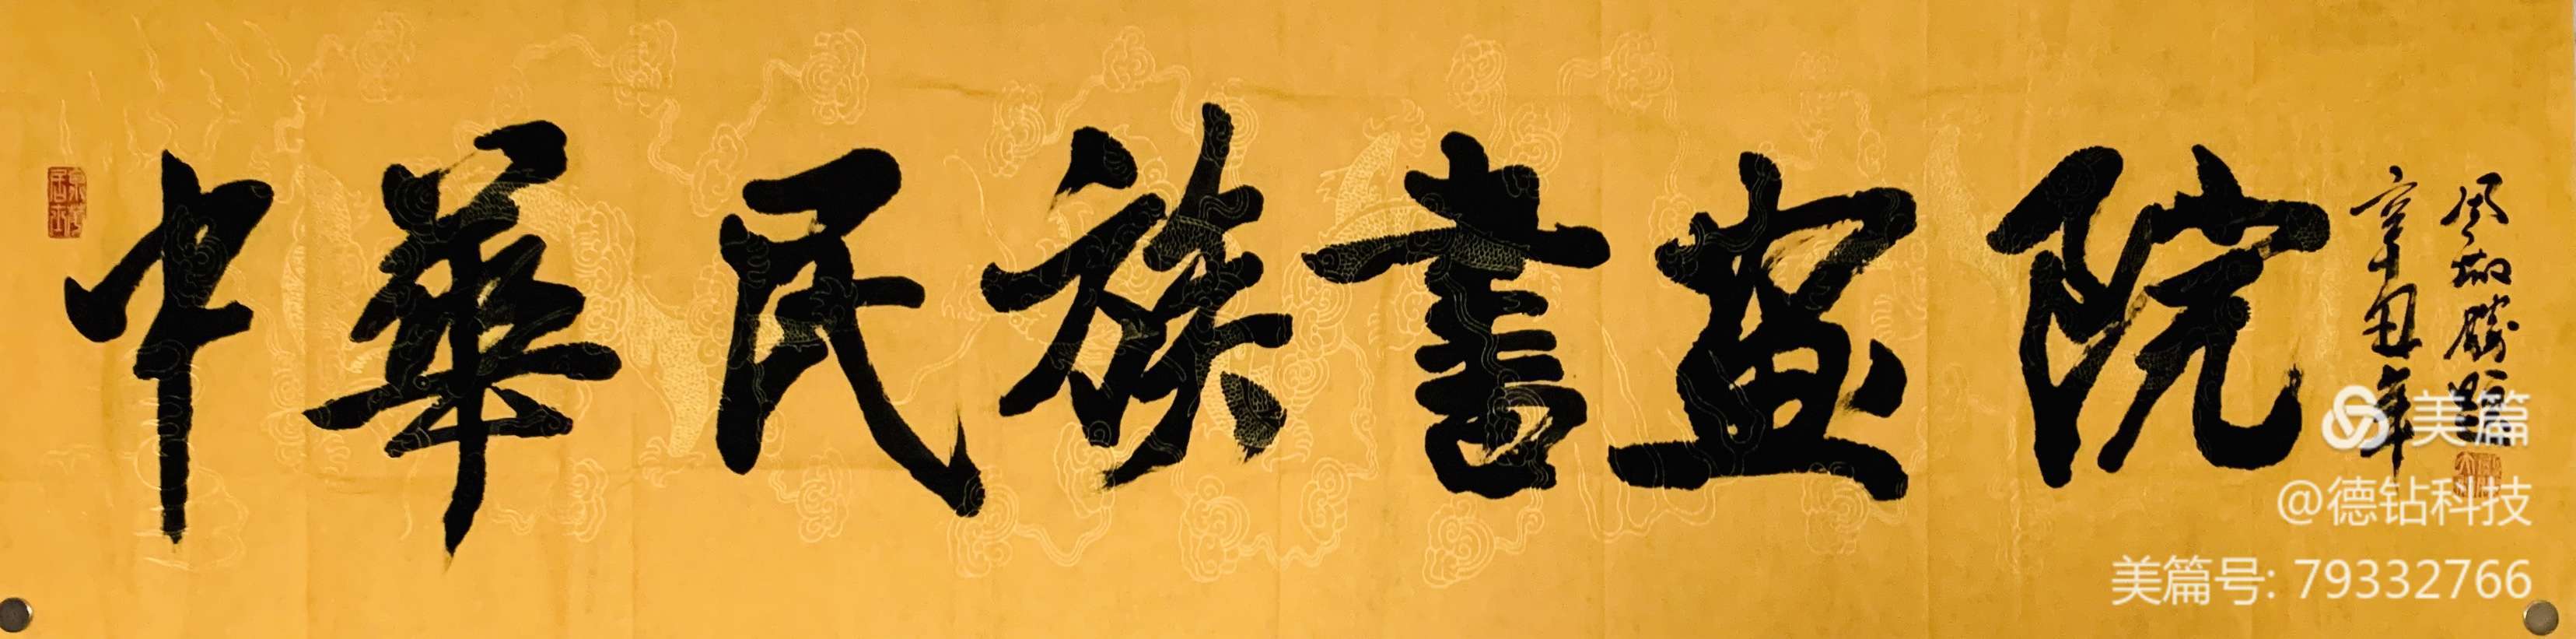 中華民族書畫院
辛丑年
美篇
@德钻科技
美篇号: 79332766